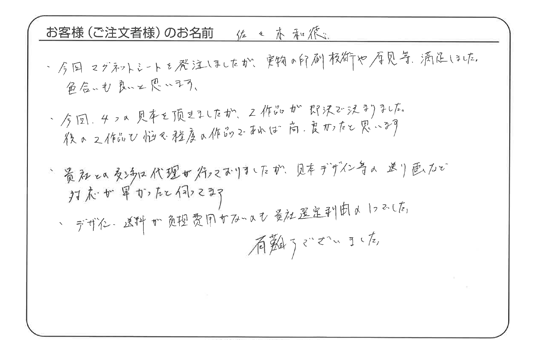 お客様（ご注文者様）のお名前 佐々木和徳
・今回マグネットシートを発注しましたが、実物の印刷技術や厚見等、満足しました。
色合いも良いと思います。
・今回、4つの見本を頂きましたが、2作品が即決で決まりました。
後の2作品も悩む程度の作品であれば尚、良かったと思います
・貴社との交渉は代理が行っておりましたが、見本デザイン等の送り画など
対応が早かったと伺ってます
・デザイン、送料が無理費用がないのも貴社選定理由の1つでした。
有難うございました。